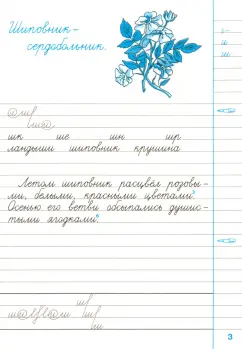 Шиповник-
сердобольник.
шк ше шн шр
ландыши шиповник крушина
Летом шиповник расцвёл розовы-
ми, белыми, красными цветами.
Осенью его ветви обсыпались душис-
тыми ягодками.
3